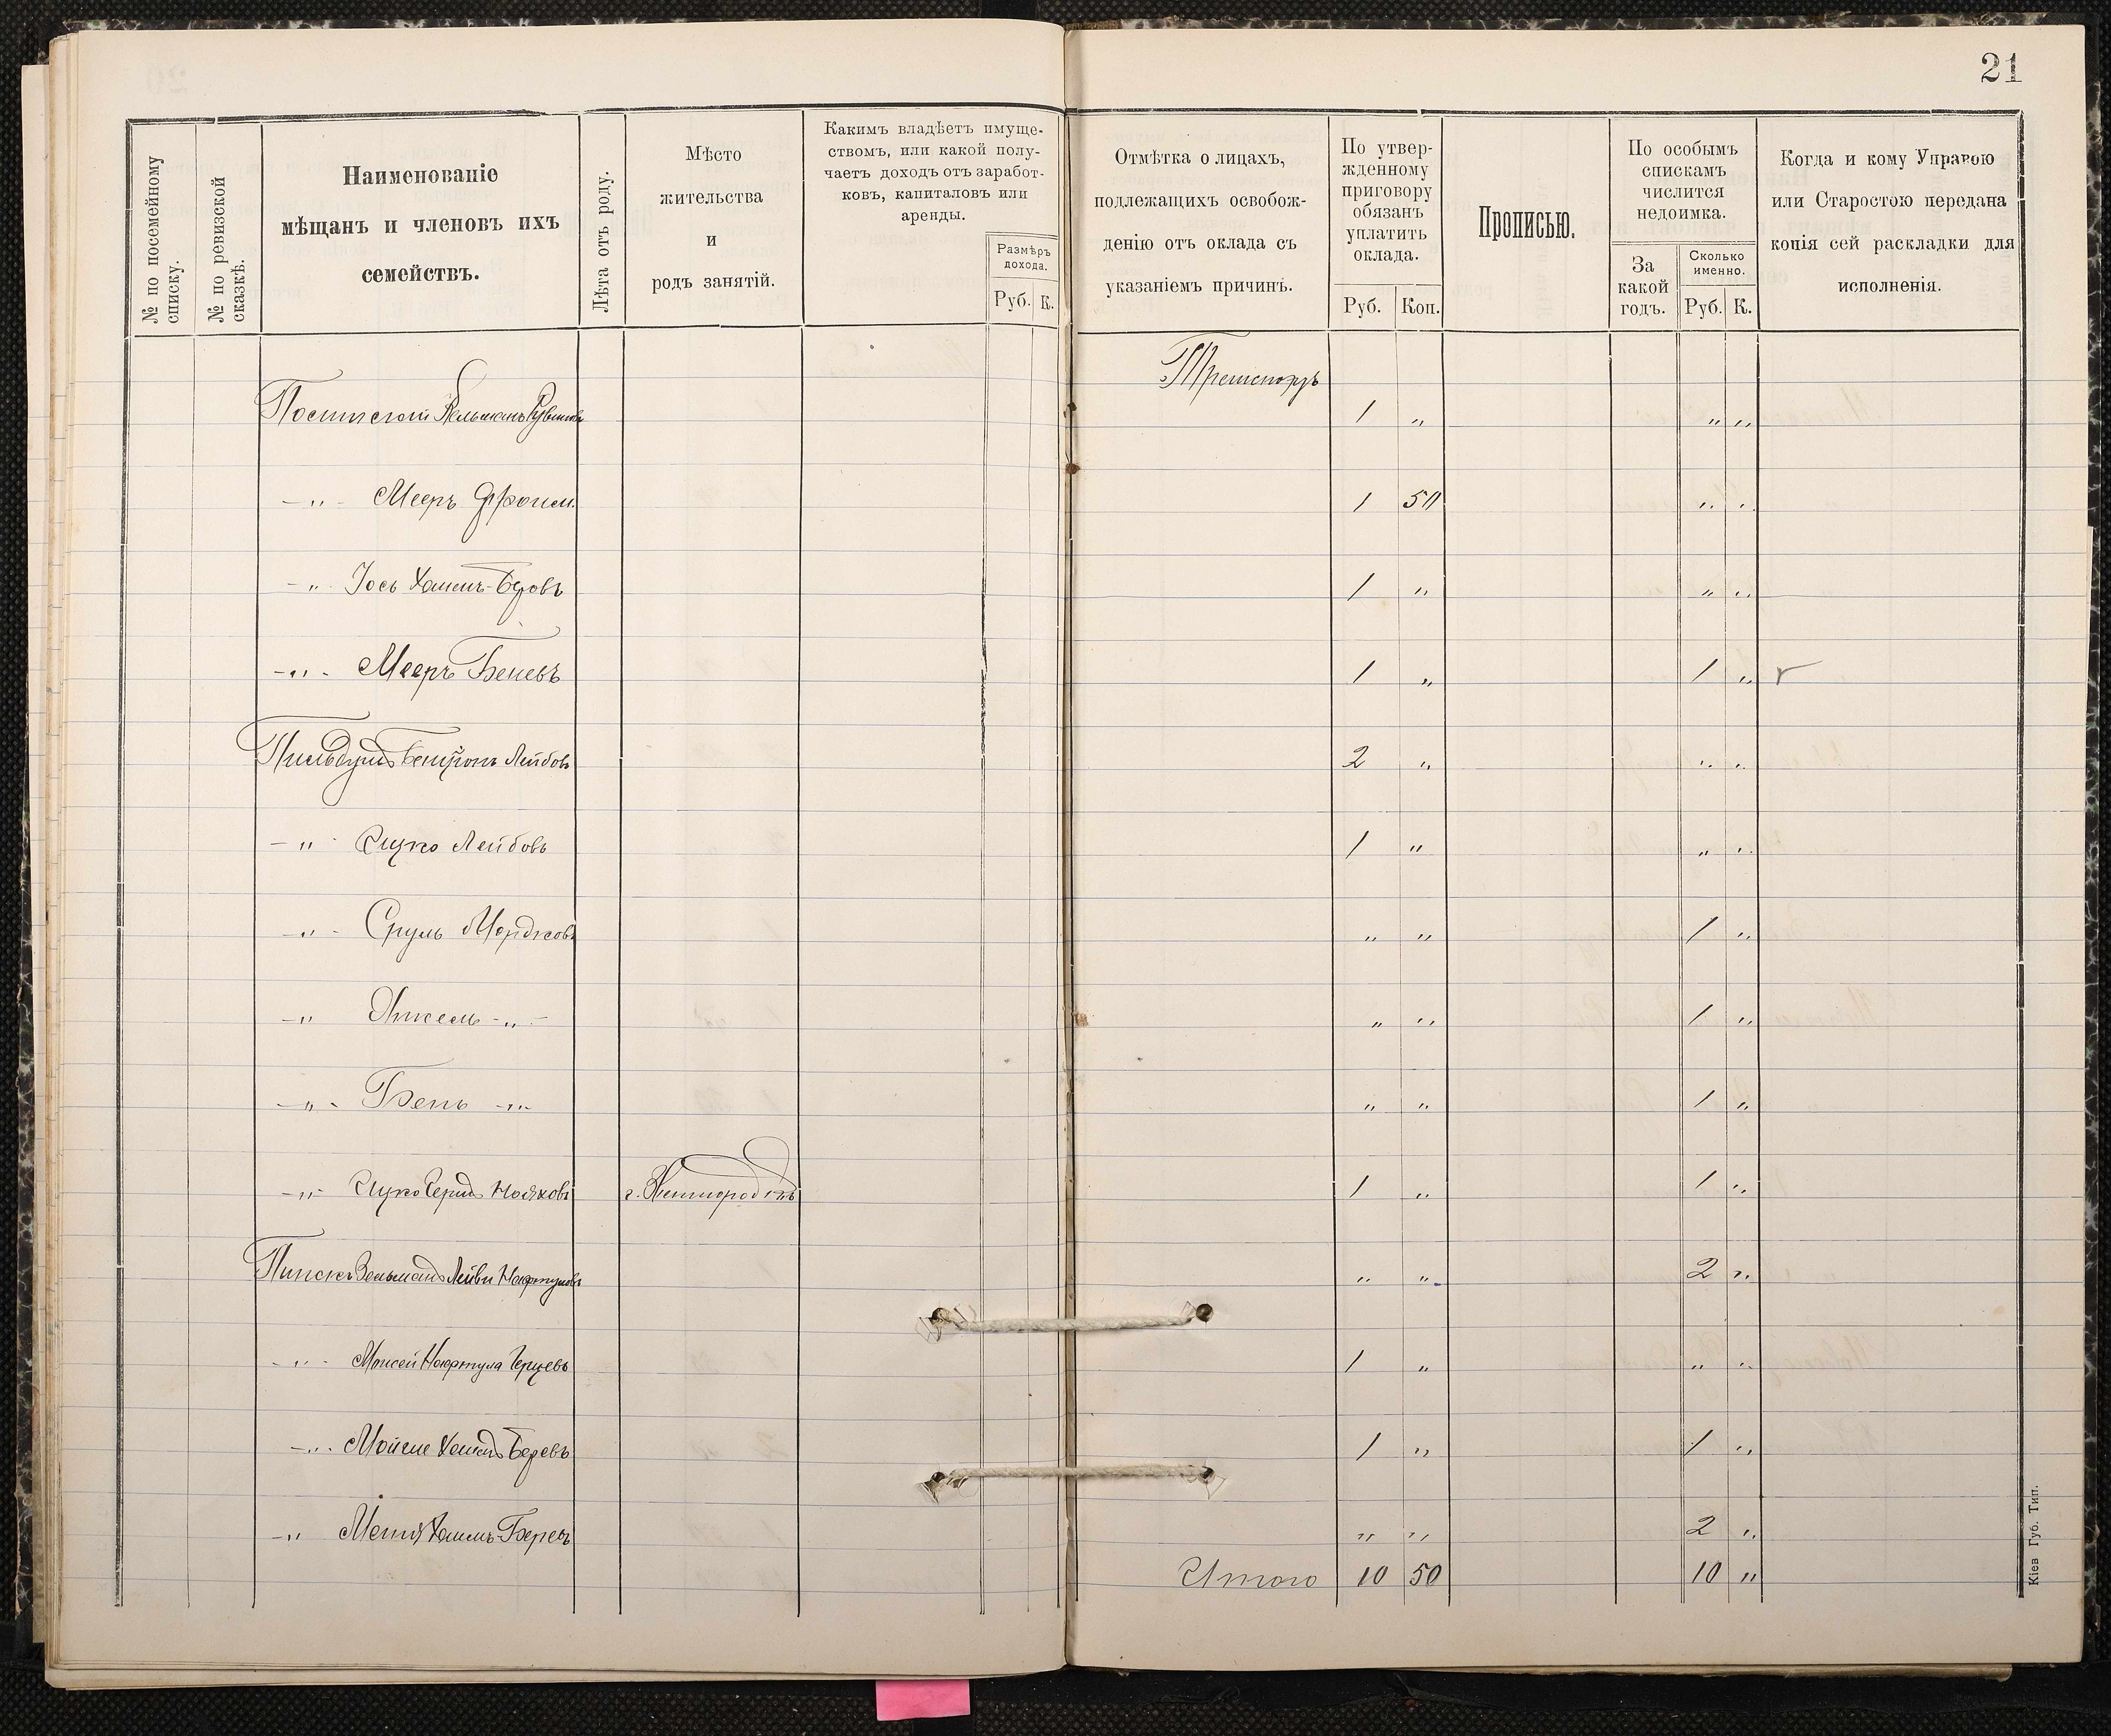 21
№ по посемейному списку.
№ по ревизской сказкѣ.
Наименованіе
мѣщанъ и членовъ ихъ
семействъ.
Лѣта отъ роду.
Мѣсто
жительства
и
родъ занятій.
Какимъ владѣетъ имуще-
ствомъ, или какой полу-
чаетъ доходъ отъ заработ-
ковъ, капиталовъ или
аренды.
Размѣръ
дохода.
Руб. К.
Отмѣтка о лицахъ,
подлежащихъ освобож-
денію отъ оклада съ
указаніемъ причинъ.
По утвер-
жденному
приговору
обязанъ
уплатить
оклада.
Руб. Коп.
Прописью.
По особымъ
спискамъ
числится
недоимка.
За
какой
годъ.
Сколько
именно.
Руб. К.
Когда и кому Управою
или Старостою передана
копія сей раскладки для
исполненія.
1 „ „ „
-„- Мееръ Фроим. 1 50 „ „
-„- Іось Хаимъ-Беровъ 1 „ „ „
-„- Мееръ Беневъ 1 „ 1 „
Лейбовъ 2 „ „ „
-„- Ицко Лейбовъ 1 „ „ „
-„- Сруль Мордковъ „ „ 1 „
-„- -„- „ „ 1 „
-„- Бень -„- „ „ 1 „
-„- Ицко Герш 1 „ 1 „
Пинскъ Зельман Лейви Нафтуловъ „ „ 2 „
-„- Моисей Нафтула Герцевъ 1 „ „ „
-„- Мойше Хаим Беревъ 1 „ 1 „
-„- Хаимъ Беревъ „ „ 2 „
Итого 10 50 10 „
Кіев Губ. Тип.